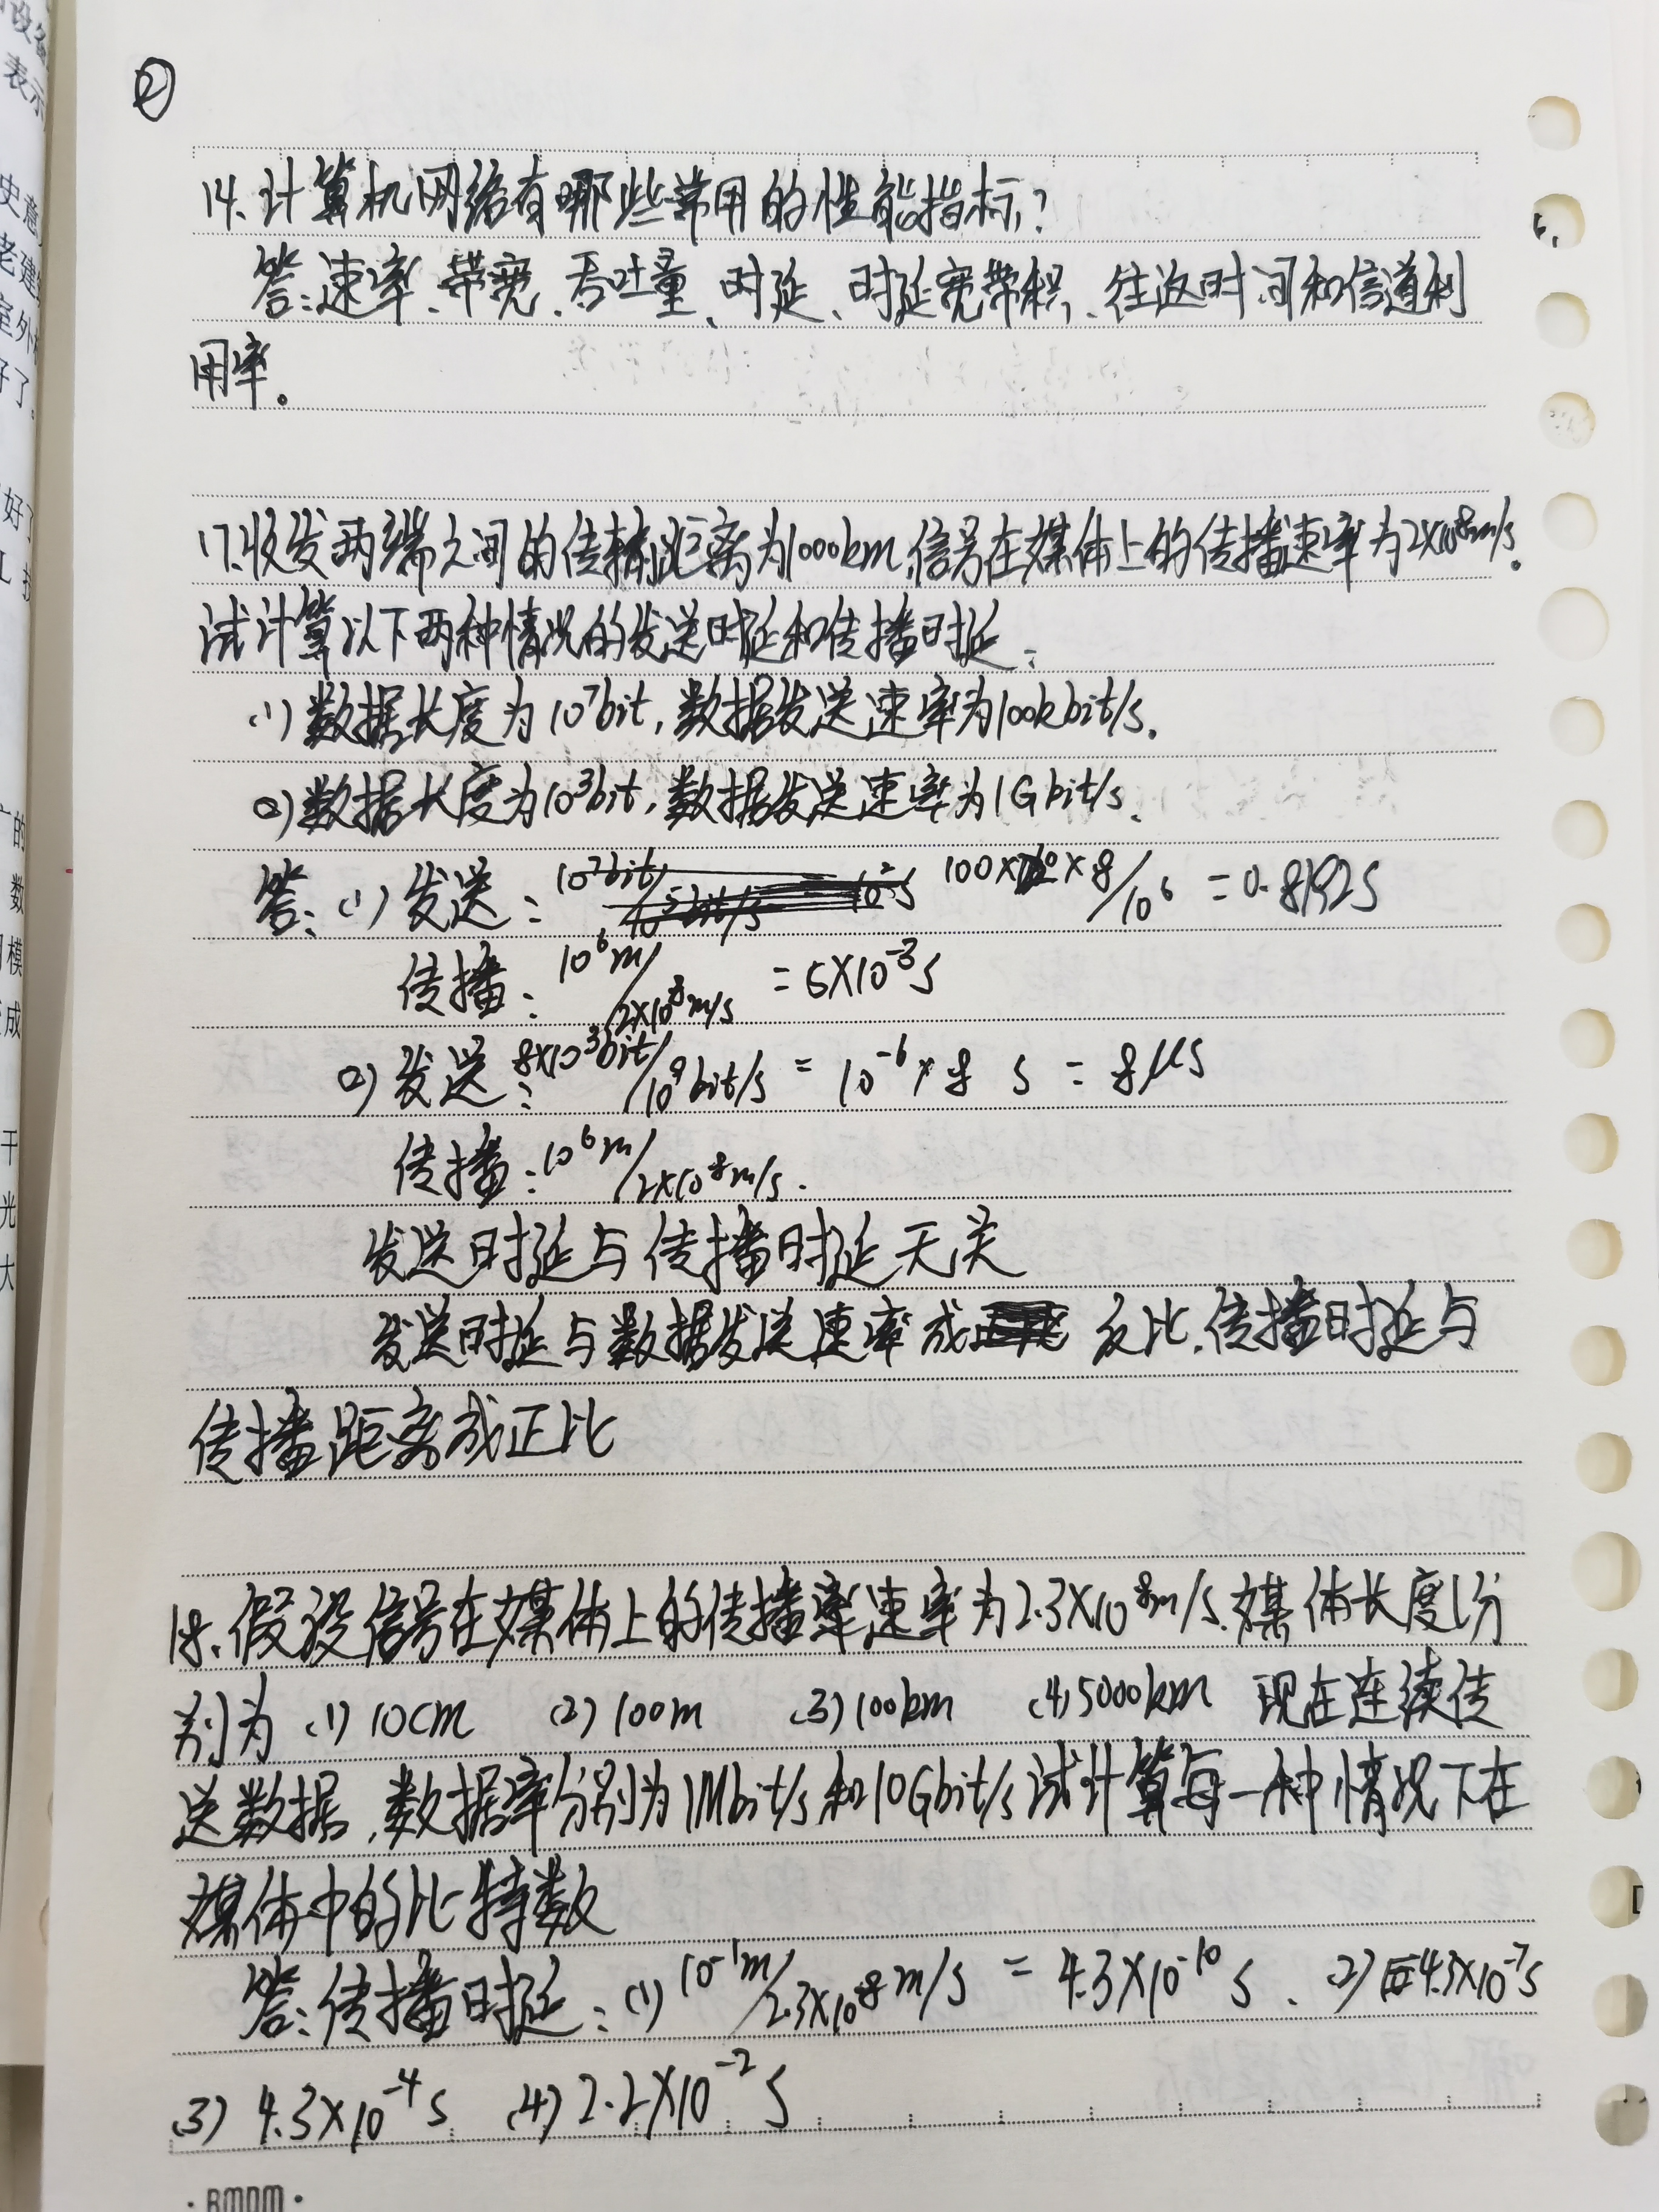 ②
14.计算机网络有哪些常用的性能指标?
答:速率、带宽、吞吐量、时延、时延宽带积、往返时间和信道利
用率。
17.收发两端之间的传输距离为1000km,信号在媒体上的传播速率为2×10⁸m/s。
试计算以下两种情况的发送时延和传播时延:
(1)数据长度为10⁷bit,数据发送速率为100kbit/s.
(2)数据长度为10³bit,数据发送速率为1Gbit/s.
答:(1)发送: 100× ×8/10⁶ =0.8192s
传播:10⁶m/2×10⁸m/s =5×10⁻³s
(2)发送:8×10³bit/10⁹bit/s = 10⁻⁶×8 s = 8μs
传播:10⁶m/2×10⁸m/s.
发送时延与传播时延无关
发送时延与数据发送速率成 反比.传播时延与
传播距离成正比
18.假设信号在媒体上的传播率速率为2.3×10⁸m/s.媒体长度l分
别为 (1)10cm (2)100m (3)100km (4)5000km 现在连续传
送数据,数据率分别为1Mbit/s和10Gbit/s试计算每一种情况下在
媒体中的比特数
答:传播时延:(1) 10⁻¹m/2.3×10⁸m/s = 4.3×10⁻¹⁰s、(2) 4.3×10⁻⁷s
(3) 4.3×10⁻⁴s (4) 2.2×10⁻²s
·BMDM·
的
数
模
成
干
光
大